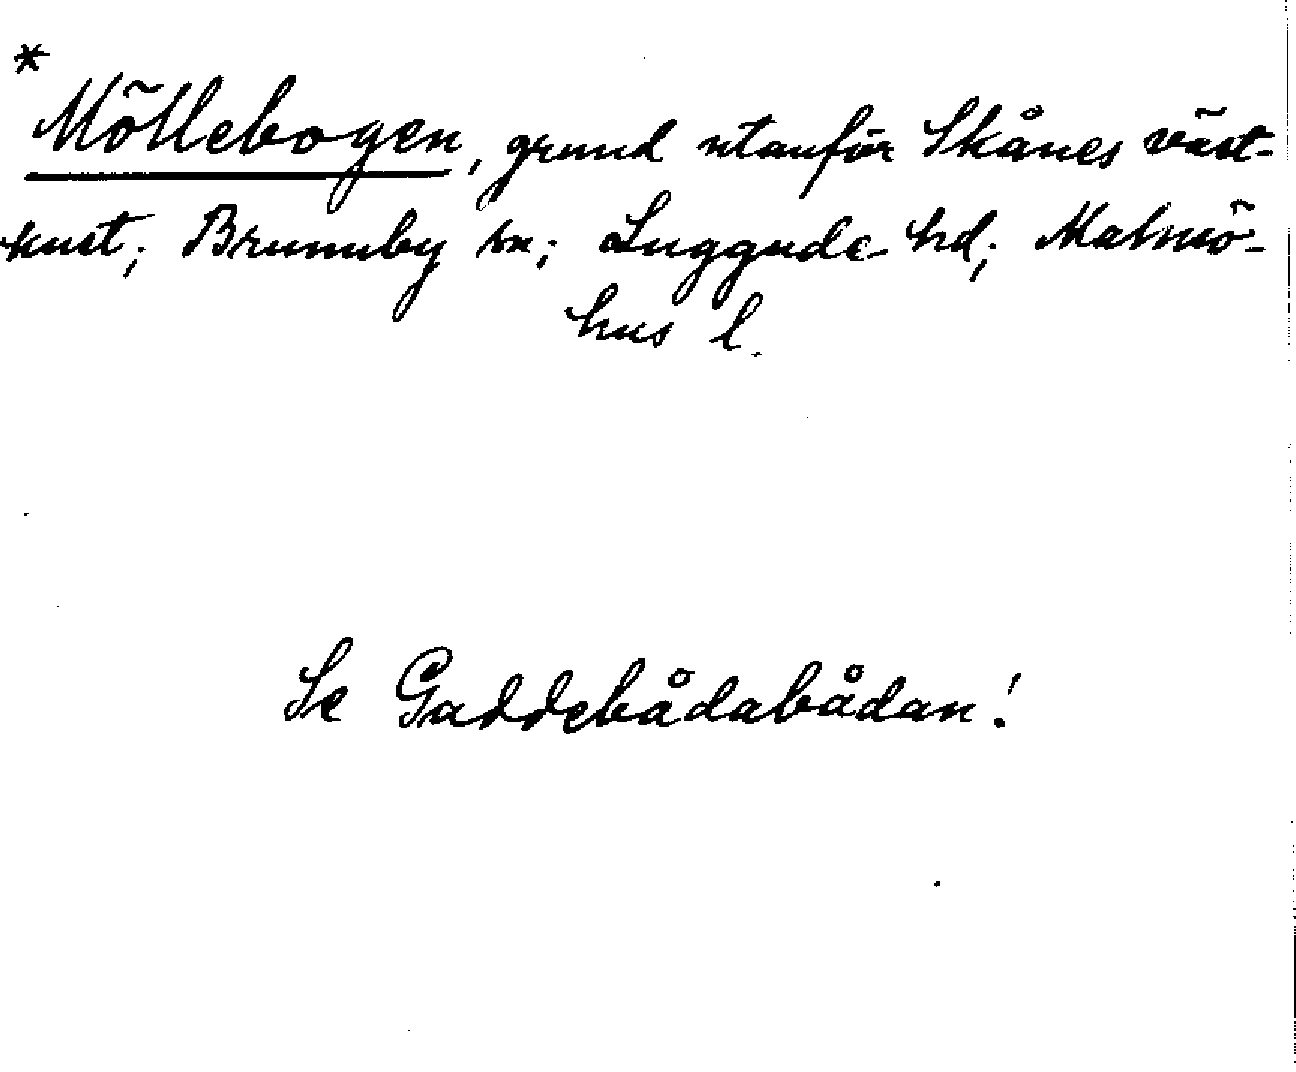 *
Möllebogen, grund utanför Skånes väst-
kust; Brunnby sn; Luggude hd; Malmö-
hus l.
Se Gaddebådabådan!